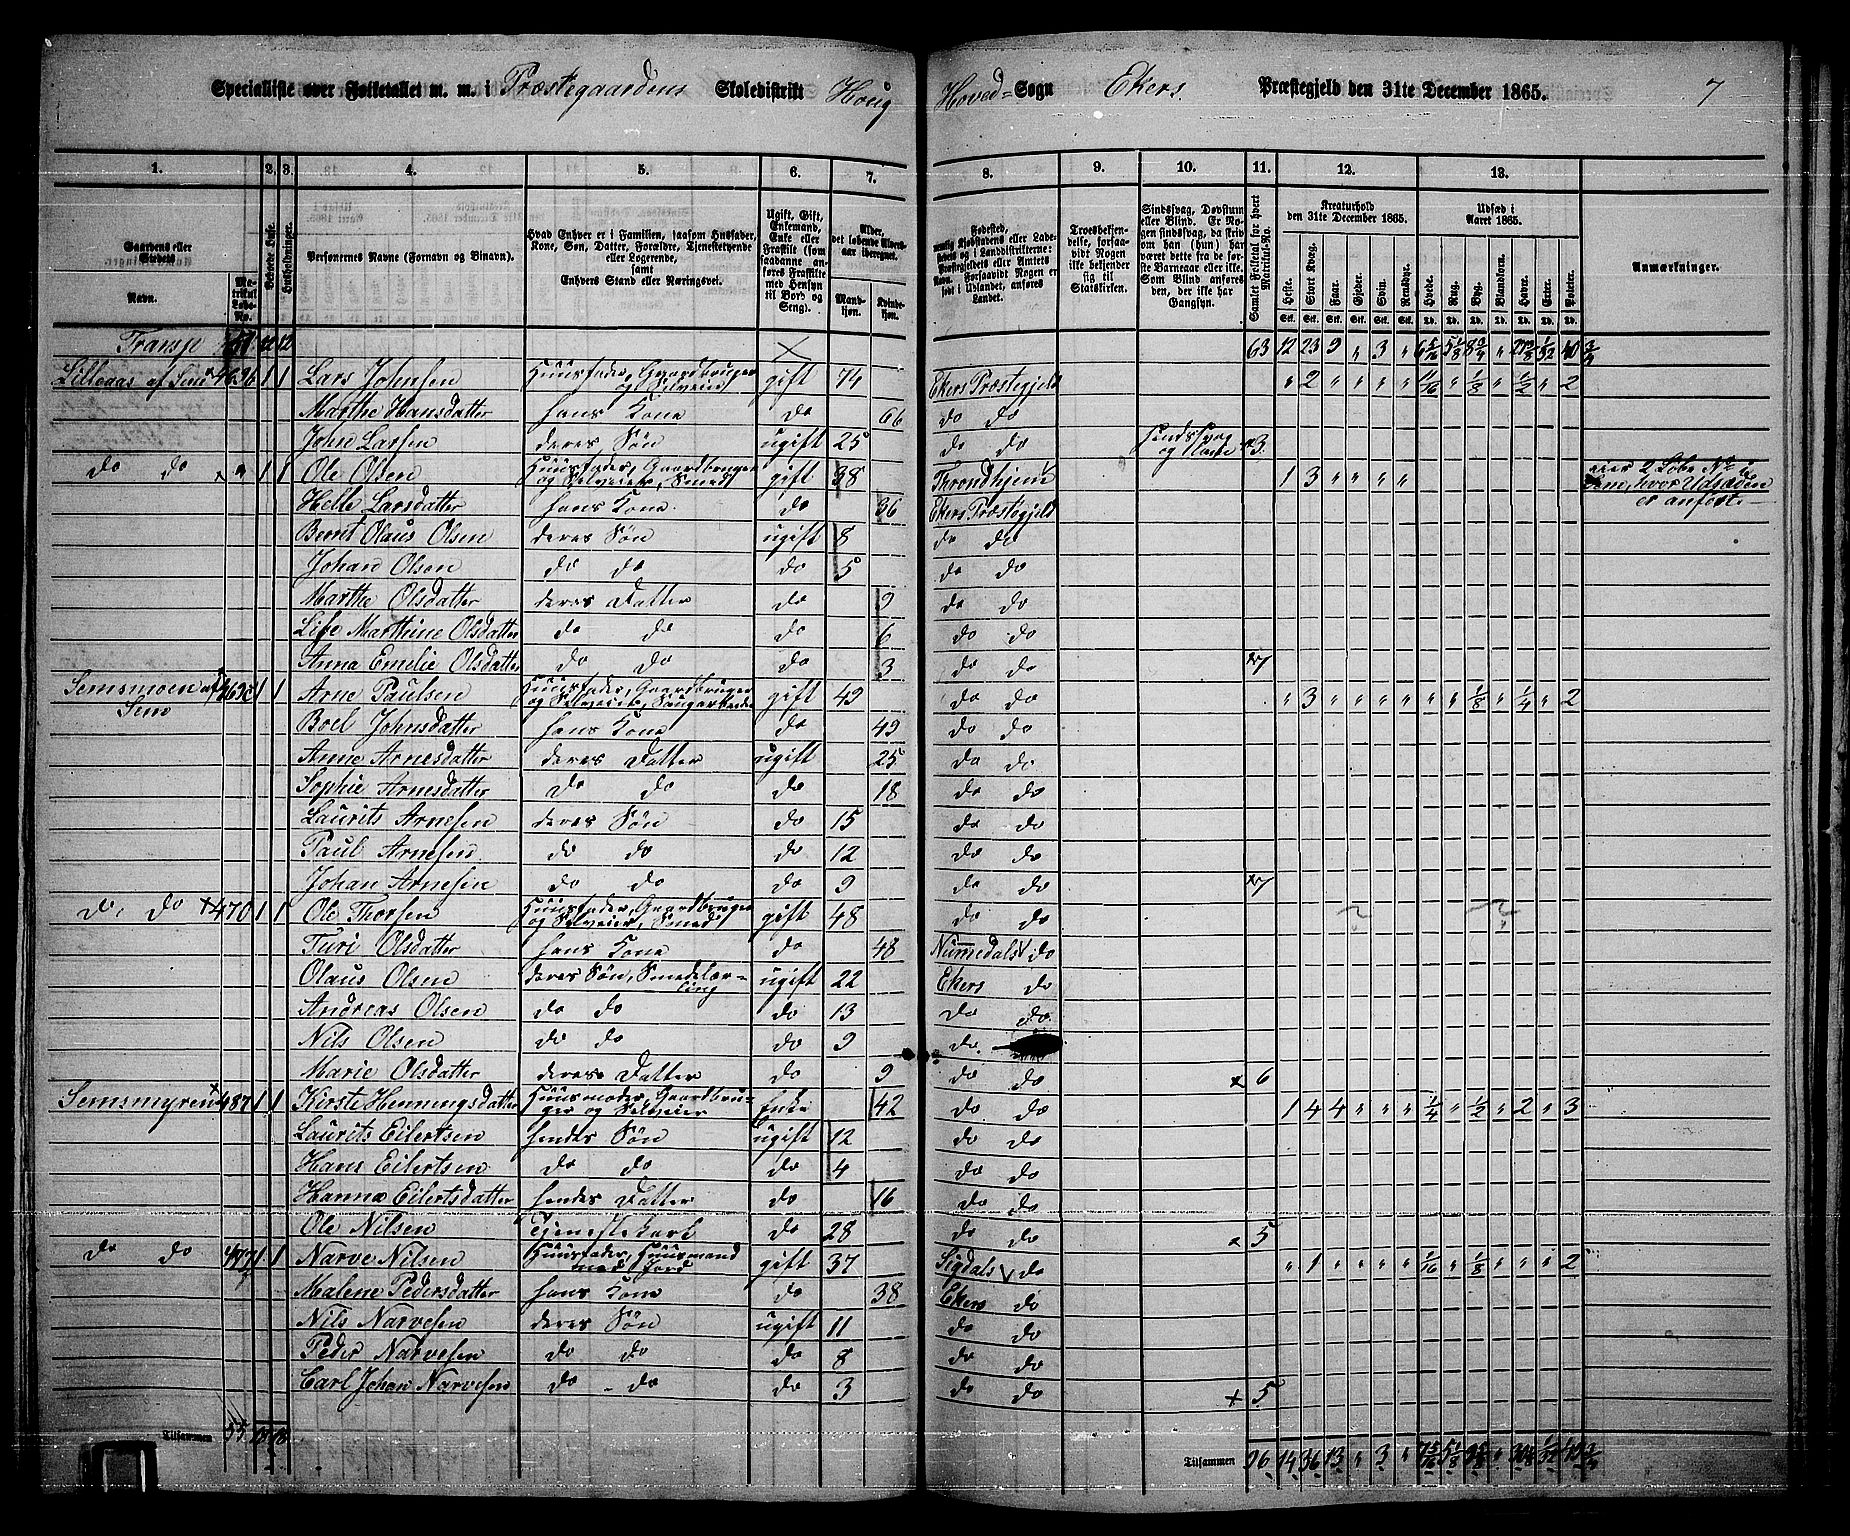 Specialliste over Folketallet m. m. i Præstegaardens Skoledistrikt Houg Hoved- Sogn Ekers Præstegjeld den 31te December 1865. 7
1. 2. 3. 4. 5. 6. 7. 8. 9. 10. 11. 12. 13.
Gaardens eller Stedets Navn. Matrikul Løbe-No. Beboede Huse. Husholdninger.
Personernes Navne (Fornavn og Binavn).
Hvad Enhver er i Familien, saasom Husfader, Kone, Søn, Datter, Forældre, Tjenestetyende eller Logerende, samt Enhvers Stand eller Næringsvei.
Ugift, Gift, Enkemand, Enke eller Fraskilt (som saadanne anføres Fraskilte med Hensyn til Bord og Seng).
Alder, det løbende Aldersaar iberegnet. Mandkjøn. Kvindekjøn.
Fødested,
Troesbekjendelse, forsaavidt Nogen ikke bekjender sig til Statskirken.
Sindssvag, Døvstum eller Blind. Er Nogen sindssvag, da skriv om han (hun) har været dette fra de første Barneaar eller ikke. Som Blind anføres den, der ikke har Gangsyn.
Samlet Folketal for hvert Matrikul-No.
Kreaturhold den 31te December 1865. Heste. Stort Kvæg. Faar. Gjeder. Sviin. Rensdyr.
Udsæd i Aaret 1865. Hvede. Rug. Byg. Blandkorn. Havre. Erter. Poteter.
Anmærkninger.
Transp 12 63 12 23 9 " 3 "
Lilleaas af Sem 1 1 Lars Johnsen Huusfader, Gaardbruger og Selveier gift 74 Ekers Præstegjeld " 2 " " " " 2
Marthe Hansdatter hans Kone do 66 do do
John Larsen deres Søn ugift 25 do do Sindssvag 3
do do " 1 1 Ole Olsen Huusfader, Gaardbruger og Selveier, Smed gift 38 Throndhjem 1 3 " " " " eier 2 Løbe No i Sem, hvor Udsæden er anført.
Helle Larsdatter hans Kone do 36 Ekers Præstegjeld
Bernt Olaus Olsen deres Søn ugift 8 do do
Johan Olsen do do do 5 do do
Marthe Olsdatter deres Datter do 9 do do
Lise Marthine Olsdatter do do do 6 do do
Anna Emelie Olsdatter do do do 3 do do 7
Semsmoen af Sem 1 1 Arne Paulsen Huusfader, Gaardbruger og Selveier, gift 49 do do " 3 " " " " " " 1/8 " 1/4 " 2
Boel Johnsdatter hans Kone do 49 do do
Anne Arnesdatter deres Datter ugift 25 do do
Sophie Arnesdatter do do do 18 do do
Laurits Arnesen deres Søn do 15 do do
Paul Arnesen do do do 12 do do
Johan Arnesen do do do 9 do do 7
do, do 470 1 1 Ole Thorsen Huusfader, Gaardbruger og Selveier, Smed gift 48 do do
Turi Olsdatter hans Kone do 48 Nummedals do
Olaus Olsen deres Søn, Smedelærling ugift 22 Ekers do
Andreas Olsen do do do 13 do do
Nils Olsen do do do 9 do
Marie Olsdatter deres Datter do 9 do do 6
Semsmyren 487 1 1 Kirste Henningsdatter Huusmoder, Gaardbruger og Selveier Enke 42 do do 1 4 4 " " " 1/4 " 1/2 " 2 " 3
Laurits Eilertsen hendes Søn ugift 12 do do
Hans Eilertsen do do do 4 do do
Hanna Eilertsdatter hendes Datter do 16 do do
Ole Nilsen Tjenestekarl do 28 do do 5
do do 1 1 Narve Nilsen Huusfader, Huusmand med Jord gift 37 Sigdals do " 1 " " " " 1/16 " 1/8 " " " 2
Malene Pedersdatter hans Kone do 38 Ekers do
Nils Narvesen deres Søn ugift 11 do do
Peder Narvesen do do do 8 do do
Carl Johan Narvesen do do do 3 do do 5
Tilsammen
Tilsammen 96 14 36 13 " 3 "